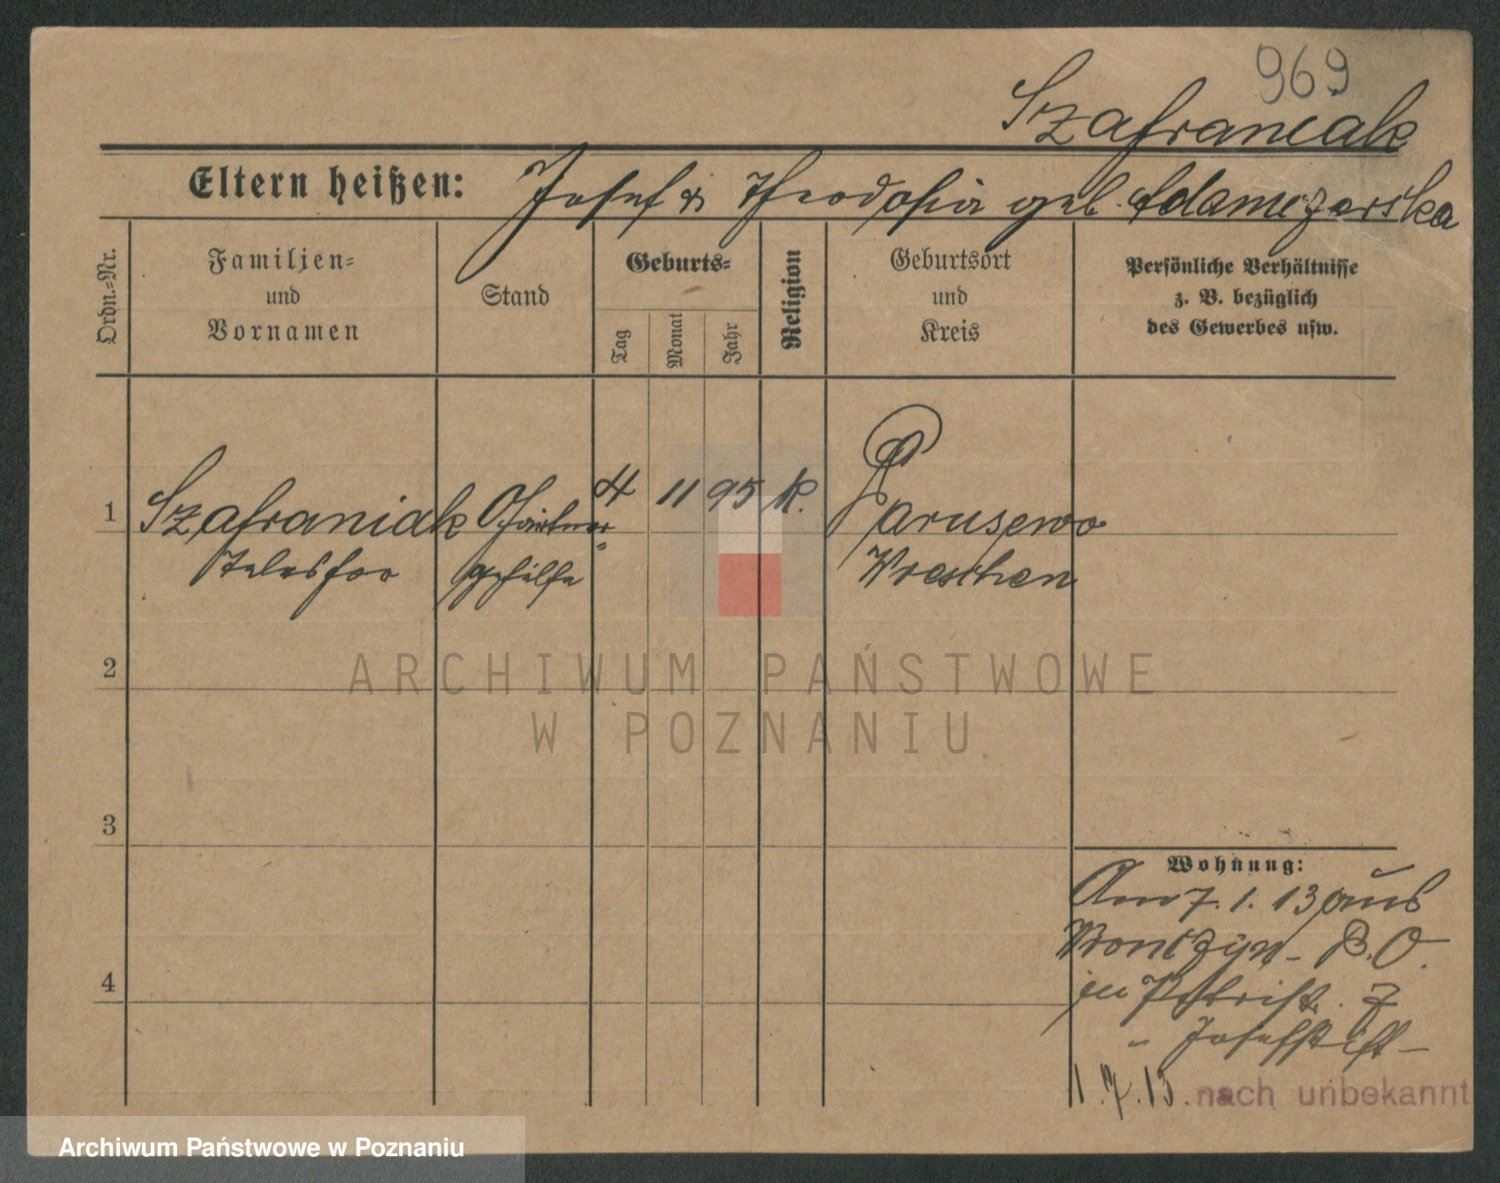 969
Szafraniak
Eltern heißen: Josef & Theodosia geb. Adamczarska
Ordn.-Nr.
Familien-
und
Vornamen
Stand
Geburts-
Tag
Monat
Jahr
Religion
Geburtsort
und
Kreis
Persönliche Verhältnisse
z. B. bezüglich
des Gewerbes usw.
1 Szafraniak Gärtner- 4 11 95 k. Parusewo
Telesfor gehilfe Wreschen
ARCHIWUM PAŃSTWOWE
W POZNANIU
2
3
4
Wohnung:
Am 7. 1. 13 aus
Bonczyn - P.O.
in Petrist. 7
" Josefstift -
1.7.13. nach unbekannt
Archiwum Państwowe w Poznaniu